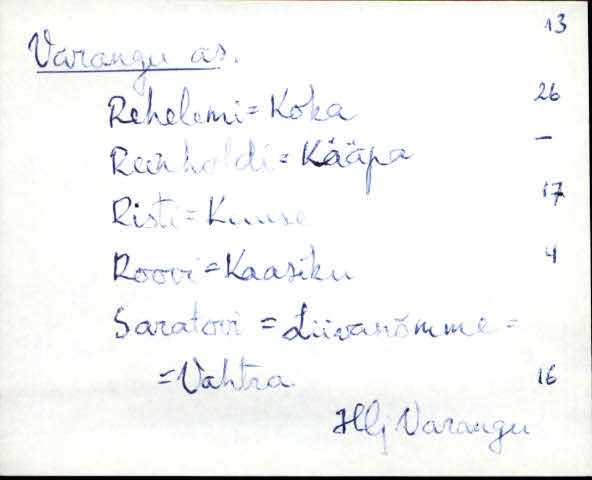 13
Varangu as.
Rehelemi = Koka 26
Reinholdi = Kääpa –
Risti = Kuuse 17
Roovi = Kaasiku 4
Saratovi = Liivanõmme =
= Vahtra 16
Hlj Varangu